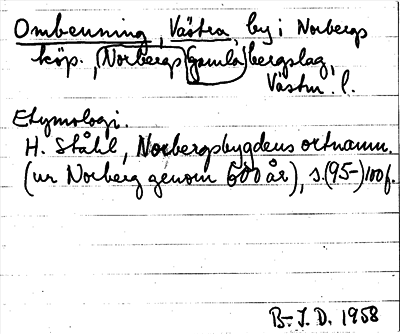 Ombenning, Västra, by i Norbergs
köp., Norbergs (gamla) bergslag,
Västm. l.
Etymologi.
H. Ståhl, Norbergsbygdens ortnamn.
(ur Norberg genom 600 år), s. (95-) 100 f.
B-I. D. 1958